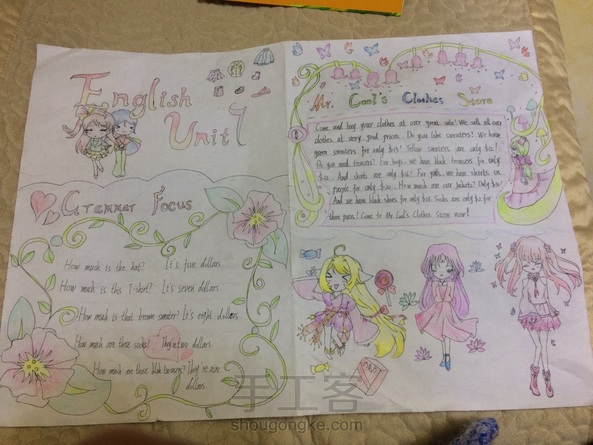 English
Unit 7
Grammar Focus
How much is the hat? It's five dollars.
How much is this T-shirt? It's seven dollars.
How much is that brown sweater? It's eight dollars.
How much are these socks? They're two dollars.
How much are those black trousers? They're nine
dollars.
Mr. Cool's Clothes Store
Come and buy your clothes at our great sale! We sell all our
clothes at very good prices. Do you like sweaters? We have
green sweaters for only $15! Yellow sweaters are only $12!
Do you need trousers? For boys, we have black trousers for only
$22. And shorts are only $16! For girls, we have skirts in
purple for only $20. How much are our jackets? Only $30!
And we have black shoes for only $28. Socks are only $2 for
three pairs! Come to Mr. Cool's Clothes Store now!
手工客
shougongke.com